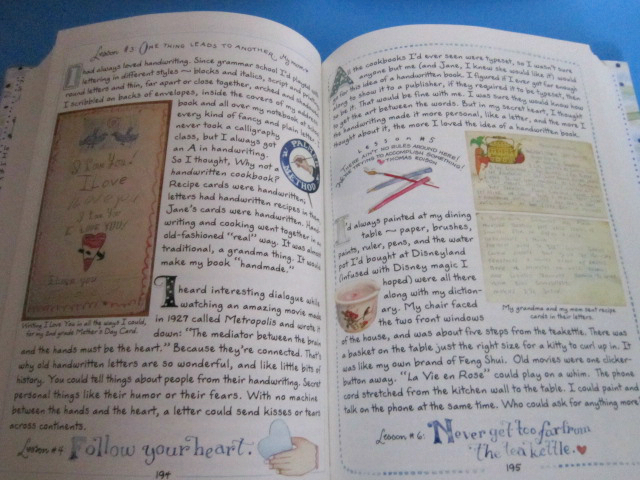 Lesson #3: ONE THING LEADS TO ANOTHER.
I had always loved handwriting. Since grammar school I'd played with
lettering in different styles — blocks and italics, script and printing,
round letters and thin, far apart or close together, arched and shaped.
I scribbled on backs of envelopes, inside the covers of my address
book and all over my notebook at school,
every kind of fancy and plain letter. I
never took a calligraphy
class, but I always got
an A in handwriting.
So I thought, Why not a
handwritten cookbook?
Recipe cards were handwritten,
letters had handwritten recipes in them.
Jane's cards were handwritten. Hand-
writing and cooking went together in an
old-fashioned "real" way. It was almost
traditional, a grandma thing. It would
make my book "handmade."
PALMER
METHOD
I Love You
I LOVE
I Love You
I LOVE YOU
Writing I Love You in all the ways I could,
for my 2nd grade Mother's Day Card.
I heard interesting dialogue while
watching an amazing movie made
in 1927 called Metropolis and wrote it
down: "The mediator between the brain
and the hands must be the heart." Because they're connected. That's
why old handwritten letters are so wonderful, and like little bits of
history. You could tell things about people from their handwriting. Secret
personal things like their humor or their fears. With no machine
between the hands and the heart, a letter could send kisses or tears
across continents.
Lesson #4 Follow your heart.
194
All the cookbooks I'd ever seen were typeset, so I wasn't sure
anyone but me (and Jane, I knew she would like it) would
like this idea of a handwritten book. I figured if I ever got far enough
along to show it to a publisher, if they required it to be typeset, then
so be it. That would be fine with me. I was sure they would want
the art between the words. But in my secret heart, I thought
the handwriting made it more personal, like a letter, and the more I
thought about it, the more I loved the idea of a handwritten book.
LESSON #5
"THERE AIN'T NO RULES AROUND HERE!
WE'RE TRYING TO ACCOMPLISH SOMETHING!"
THOMAS EDISON
I'd always painted at my dining
table — paper, brushes,
paints, ruler, pens, and the water
pot I'd bought at Disneyland
(infused with Disney magic I
hoped) were all there
along with my diction-
ary. My chair faced
the two front windows
My grandma and my mom sent recipe
cards in their letters.
of the house, and was about five steps from the teakettle. There was
a basket on the table just the right size for a kitty to curl up in. It
was like my own brand of Feng Shui. Old movies were one clicker-
button away. "La Vie en Rose" could play on a whim. The phone
cord stretched from the kitchen wall to the table. I could paint and
talk on the phone at the same time. Who could ask for anything more?
Lesson #6: Never get too far from
the teakettle.
195